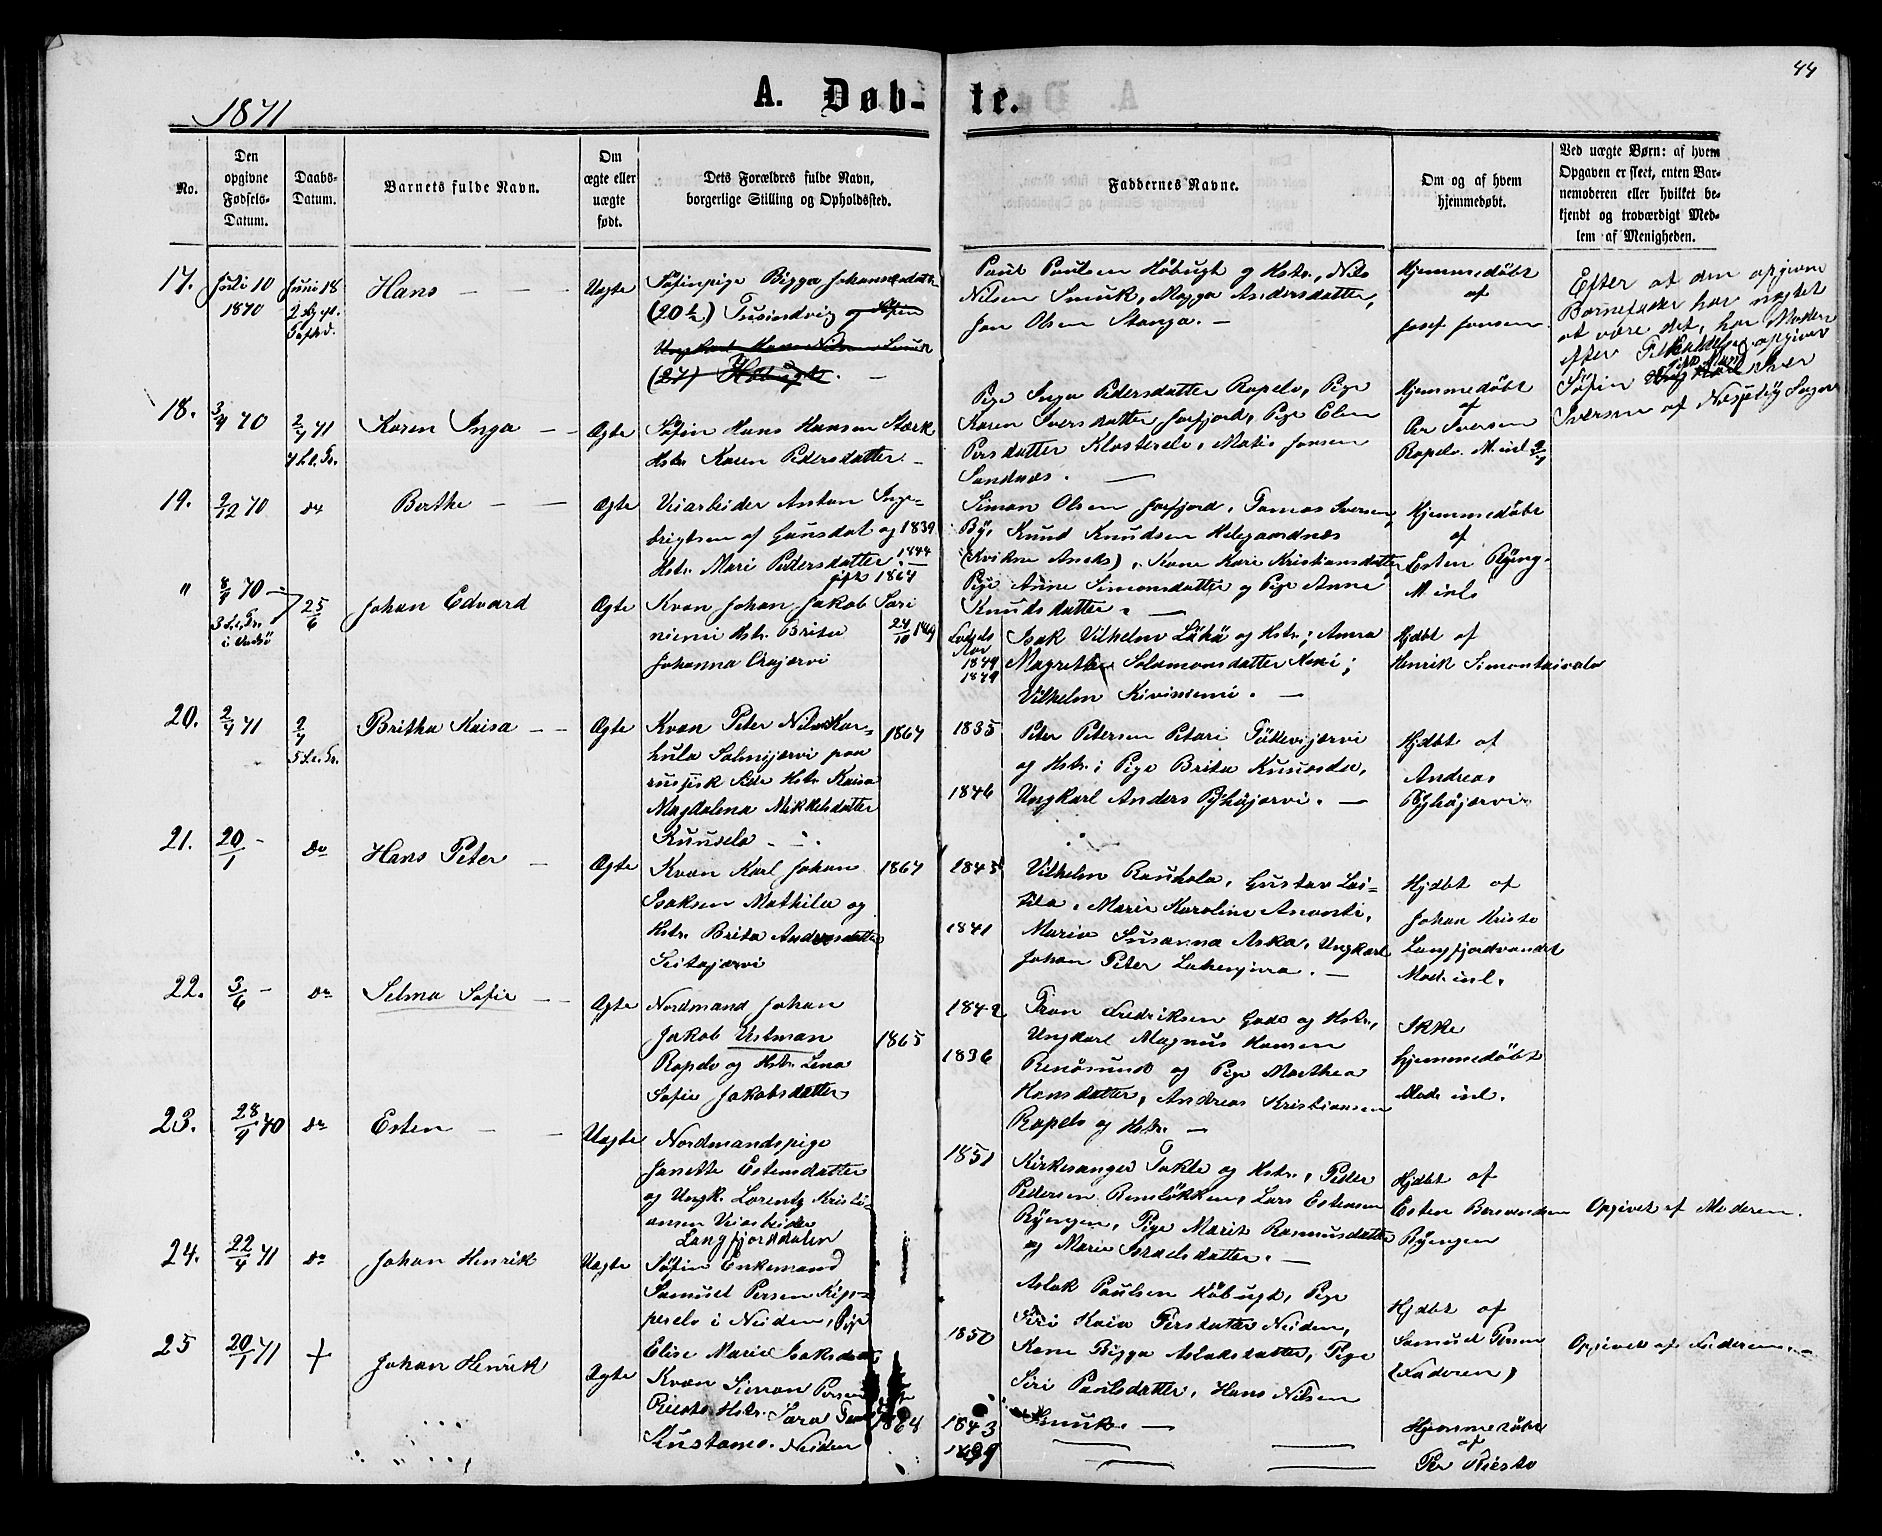 44
1871
A. Døb-te.
No.
Den opgivne Fødsels-Datum.
Daabs-Datum.
Barnets fulde Navn.
Om ægte eller uægte født.
Dets Forældres fulde Navn, borgerlige Stilling og Opholdssted.
Faddernes Navne.
Om og af hvem hjemmedøbt.
Ved uægte Børn: af hvem Opgaven er skeet, enten Barnemoderen eller hvilket bekjendt og troværdigt Medlem af Menigheden.
17.
Juli 10
1870
Juni 18
Hans
Uægte
Søfinpige Bigga Johansdatter
(20
Paul Paulsen Høbugt og Hstr., Nils
Nilsen Smuk, Magga Andersdatter,
Jon Olsen Stanga.
Hjemmedøbt
af
Josef Jonsen
Efter at den opgivne
Barnefader har nægtet
at være det, har Moderen
efter
opgivet
Søfin
Iver
Iversen af Næsseby Sogn
18.
3/4 70
2/7 71
Karen Inga
Ægte
Søfin Hans Hansen Stærk
Hstr. Karen Pedersdatter
Pige Inga Pedersdatter Ropelv, Pige
Karen Iversdatter Jarfjord, Pige Elen
Persdatter Klosterelv, Matis Jonsen
Sandnæs.
Hjemmedøbt
af
Per Iversen
Ropelv. M. inl.
19.
2/12 70
do
Berthe
Ægte
Veiarbeider Anton Inge-
brigtsen af Gausdal og 1839
Hstr. Mari Pedersdatter. 1844
gift 1864
Simon Olsen Jarfjord, Tomas Iversen
By, Knud Knudsen Helgaardnæs
(Kvikne Aneks), Kone Kari Kristiansdatter
Pige Anne Simonsdatter og Pige Anne
Knudsdatter.
Hjemmedøbt
af
Esten Ryeng
M. inl.
"
8/1 70
i Vadsø
25/6
Johan Edvard
Ægte
Kvæn Johan Jakob Sari
niemi Hstr. Brita
Johanna Orajærvi
24/10 1869
Fødsels
Aar
1844
1849
Isak Vilhelm Lähä og Hstr.; Anna
Magrethe Salamonsdatter
Vilhelm Kiviniemi.
Hjdbt af
Henrik Simontaival
20.
2/4 71
2/7
Britha Kaisa
Ægte
Kvæn Peter Nilsen Kar-
hula Salmijærvi paa
russisk Side Hstr. Kaisa
Magdalena Mikkelsdatter
Kuusela
1867
1835
1846
Peter Petersen Petari
og Hstr.; Pige Brita Kuusela,
Ungkarl Anders Pyhäjærvi.
Hjdbt af
Andreas
Pyhäjærvi
21.
20/1
do
Hans Peter
Ægte
Kvæn Karl Johan
Isaksen Mathila og
Hstr. Brita Andersdatter
Seitajærvi
1867
1843
1841
Vilhelm Rauhala, Gustav Lai-
tila, Marie Karoline Ananti,
Maria Susanna Aska, Ungkarl
Johan Peter
Hjdbt af
Johan Kristo
Langfjordvandet
Mod. inl.
22.
3/6
do
Selma Sofie
Ægte
Nordmand Johan
Jakob Ustman
Ropelv og Hstr. Lena
Sofie Jakobsdatter
1865
1842
1836
Tron Fredriksen Gade og Hstr.,
Ungkarl Magnus Hansen
Renøsund og Pige Marthea
Hansdatter, Andreas Kristiansen
Ropelv og Hstr.
Ikke
hjemmedøbt
Mod. inl.
23.
28/9 70
do
Esten
Uægte
Nordmandspige
Janette Estensdatter
og Ungk. Lorentz Kristi-
ansen Veiarbeider
Langfjorddalen
1851
Kirkesanger Takle og Hstr., Peder
Pedersen Bensløkken, Lars Estensen
Ryengen, Pige Marit Rasmusdatter
og Marie Israelsdatter.
Hjdbt af
Esten Borsvendsen
Ryengen
Opgivet af Moderen.
24.
22/4 71
do
Johan Henrik
Uægte
Søfin Enkemand
Samuel Persen
i Neiden, Pige
Elise Marie Isaksdatter
1850
Aslak Paulsen Høbugt, Pige
Siri Kaia Persdatter Neiden,
Kone Bigga Aslaksdatter, Pige
Siri Paulsdatter, Hans Nilsen
Smuk.
Hjdbt af
Samuel Persen
(Faderen)
Opgivet af Faderen
25
20/1 71
+
Johan Henrik
Ægte
Kvæn Simon Persen
Riesto Hstr. Sara
Kustamo. Neiden
1864
1843
Hjemmedøbt
af
Per Riesto